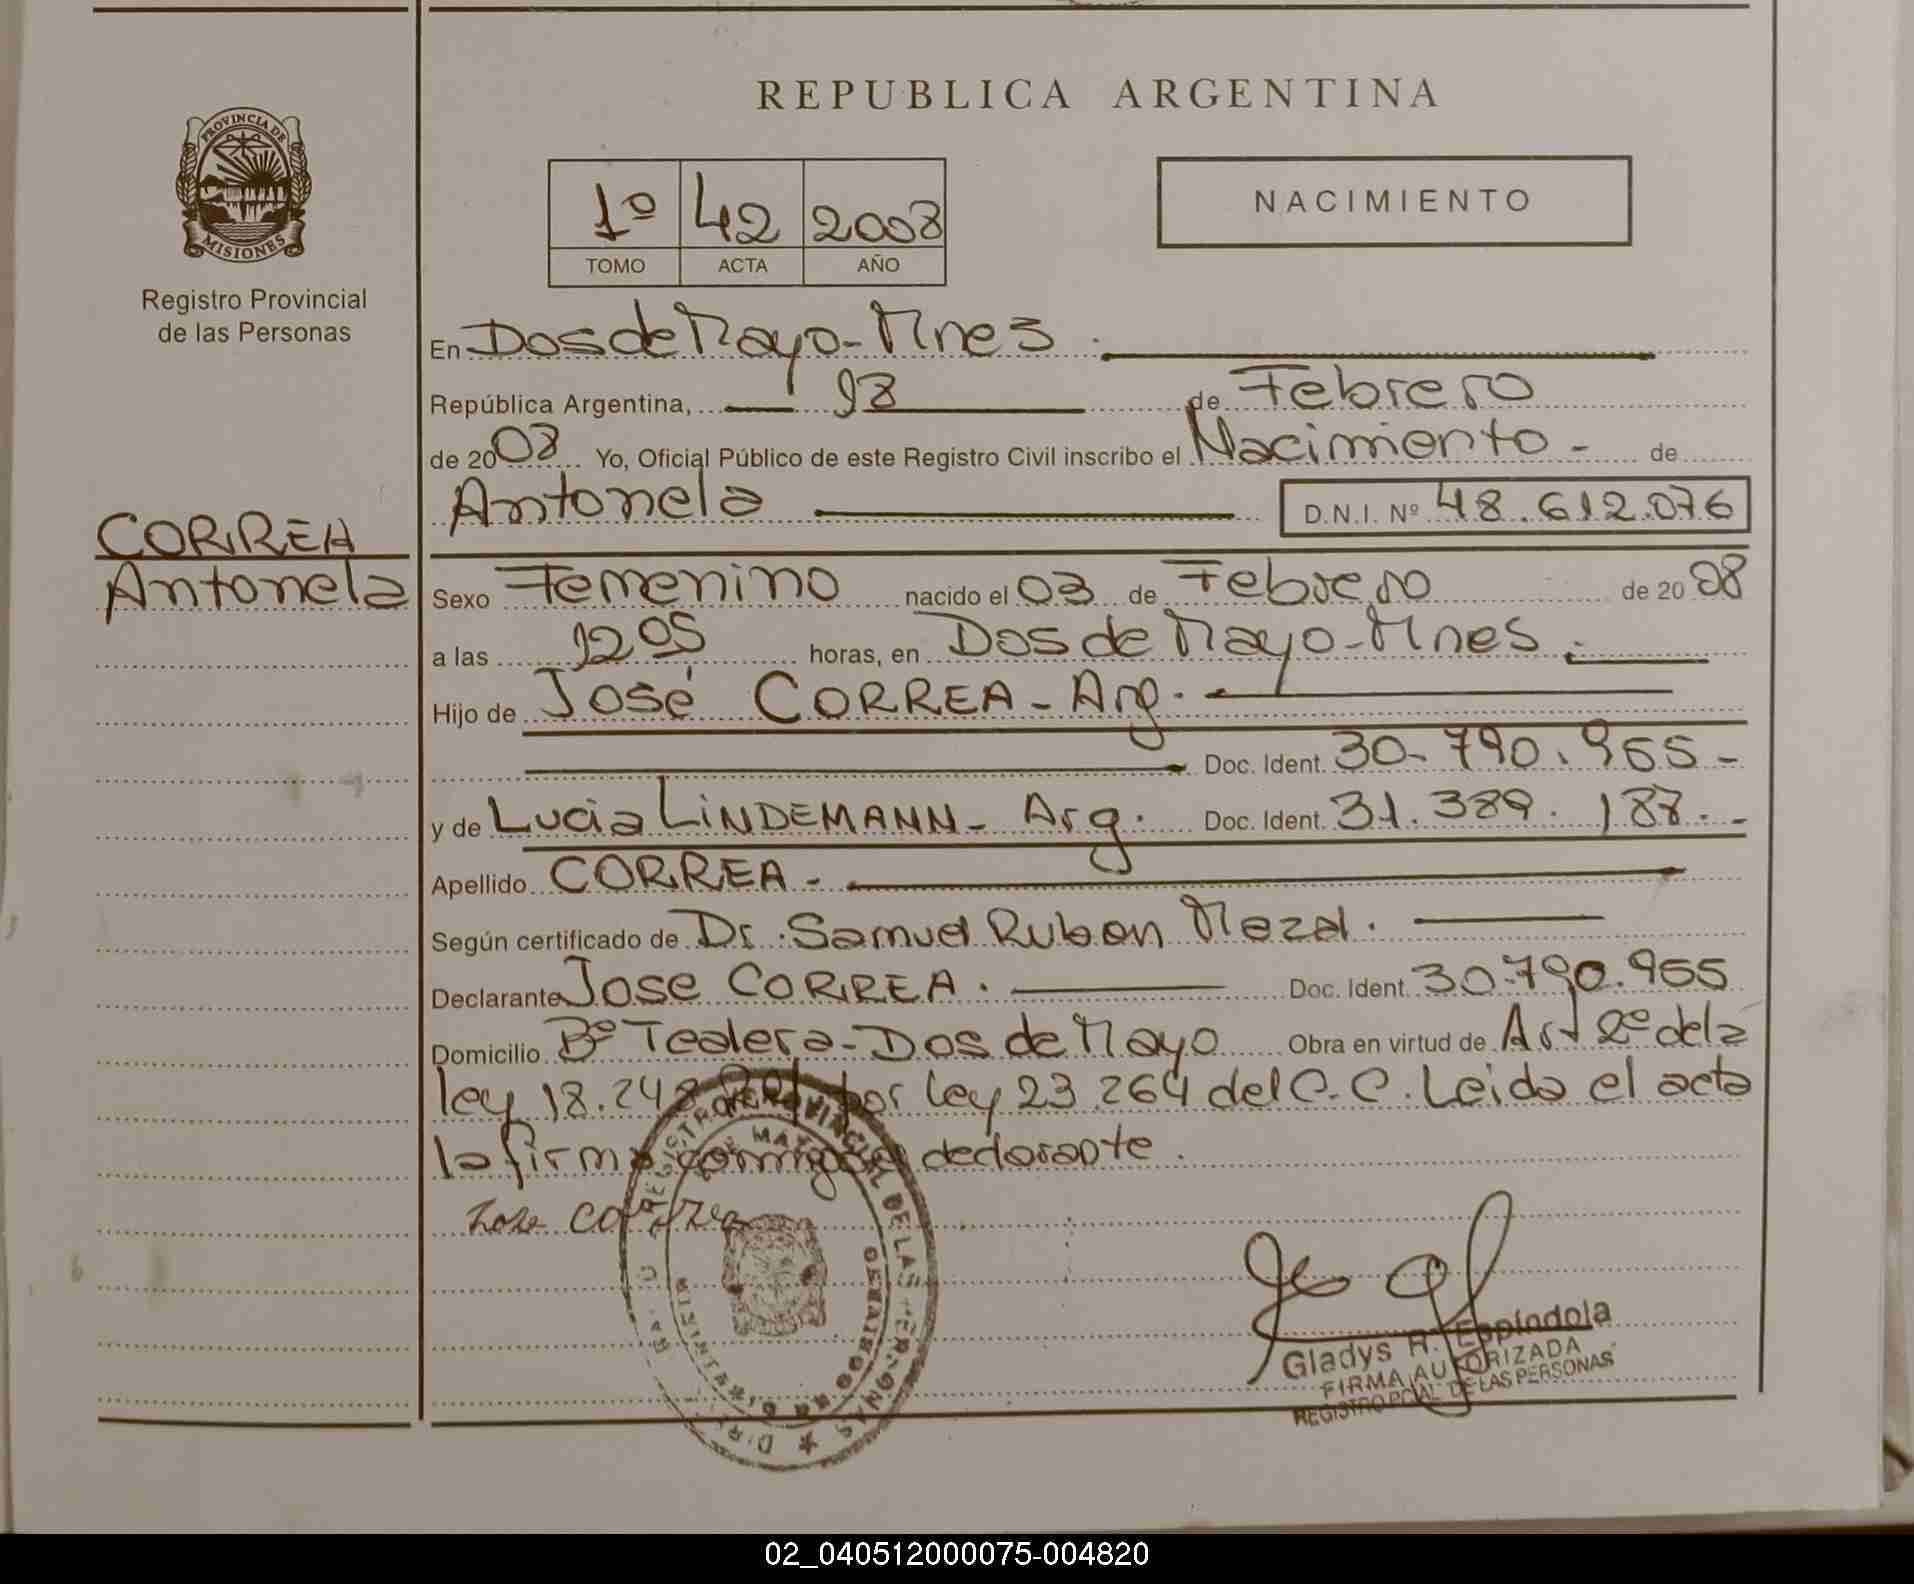 REPUBLICA ARGENTINA
PROVINCIA DE
MISIONES
Registro Provincial
de las Personas
1º 42 2008
TOMO ACTA AÑO
NACIMIENTO
En Dos de Mayo - Mnes
República Argentina, 18 de Febrero
de 2008 Yo, Oficial Público de este Registro Civil inscribo el Nacimiento - de
Antonela D.N.I. Nº 48.612.076
CORREA
Antonela
Sexo Femenino nacido el 03 de Febrero de 2008
a las 12 05 horas, en Dos de Mayo - Mnes.
Hijo de José CORREA - Arg.
Doc. Ident. 30-790.955 -
y de Lucia LINDEMANN - Arg. Doc. Ident. 31.389.187.-
Apellido CORREA -
Según certificado de Dr. Samuel Ruben
Declarante Jose CORREA. Doc. Ident. 30.790.955
Domicilio Bº Tealera - Dos de Mayo Obra en virtud de Art 2º de la
ley 18.248 por ley 23.264 del C.C. Leida el acta
la firma conmigo el declarante.
Jose Correa
REGISTRO PROVINCIAL DE LAS PERSONAS
Gladys R. Espíndola
FIRMA AUTORIZADA
REGISTRO PCIAL DE LAS PERSONAS
02_040512000075-004820